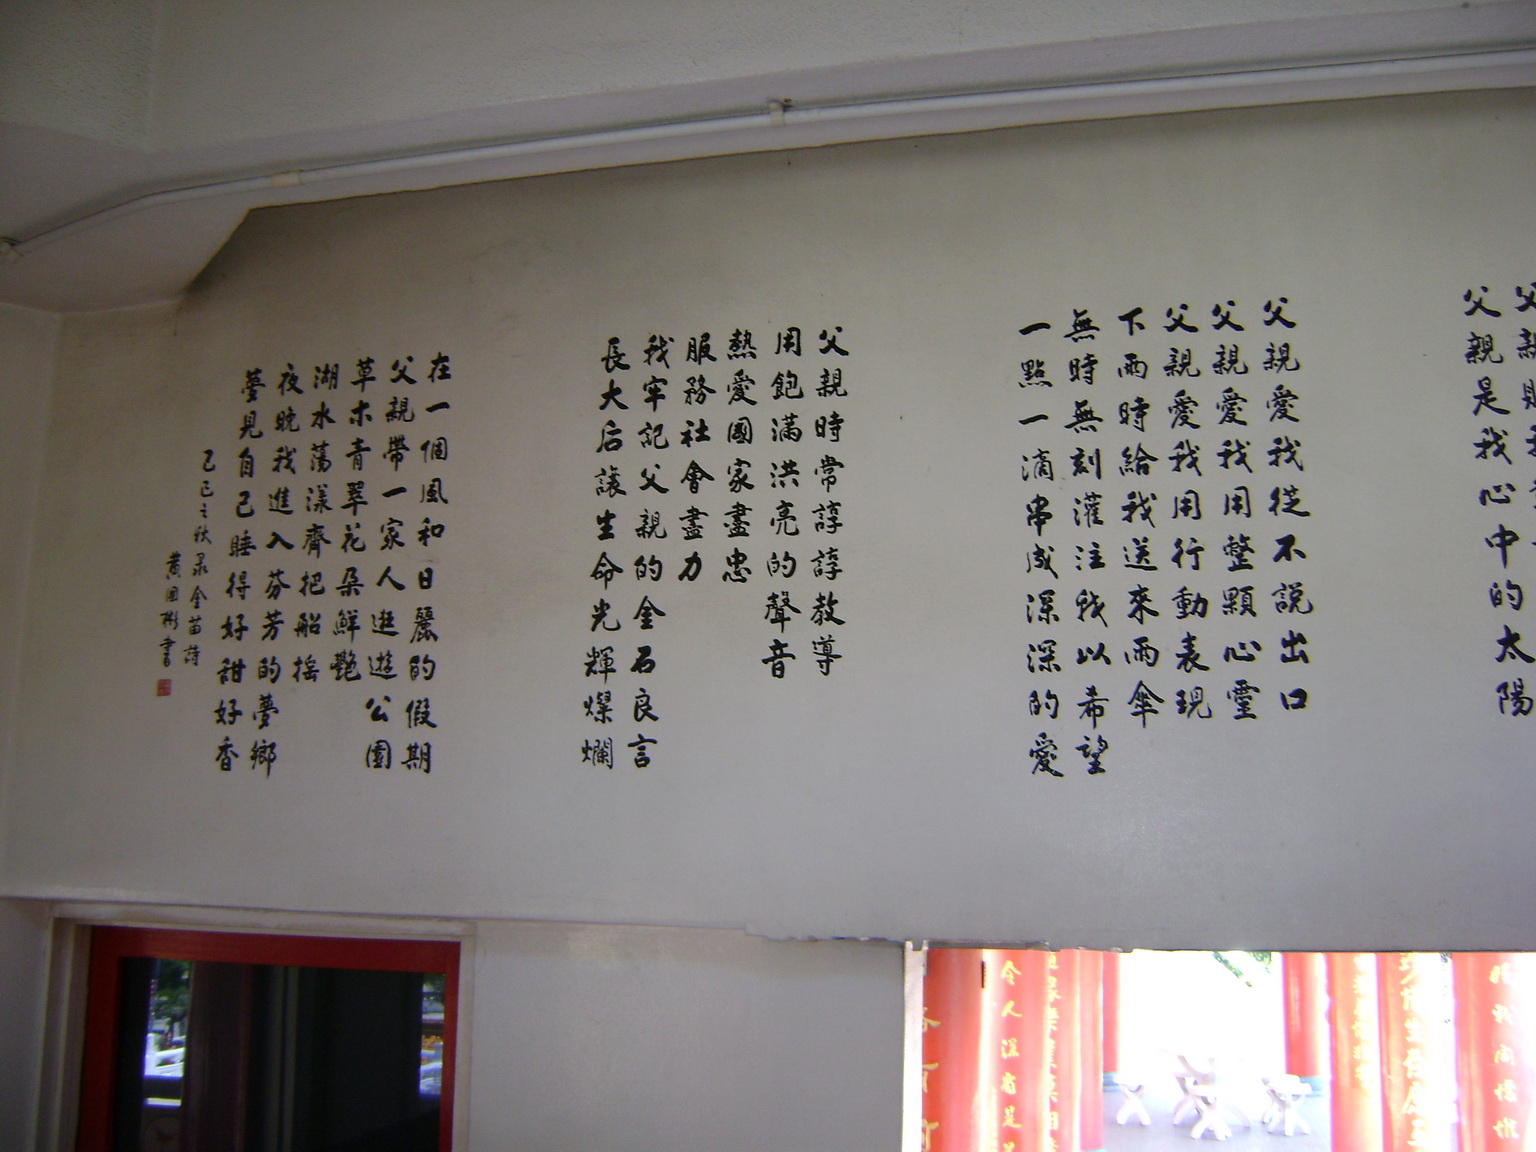 父親是我心中的太陽
父親愛我從不說出口
父親愛我用整顆心靈
父親愛我用行動表現
下雨時給我送來雨傘
無時無刻灌注我以希望
一點一滴串成深深的愛
父親時常諄諄教導
用飽滿洪亮的聲音
熱愛國家盡忠
服務社會盡力
我牢記父親的金石良言
長大后讓生命光輝燦爛
在一個風和日麗的假期
父親帶一家人逛遊公園
草木青翠花朵鮮艷
湖水蕩漾齊把船搖
夜晚我進入芬芳的夢鄉
夢見自己睡得好甜好香
己巳之秋录金苗詩
黃国彬書
令人深省是